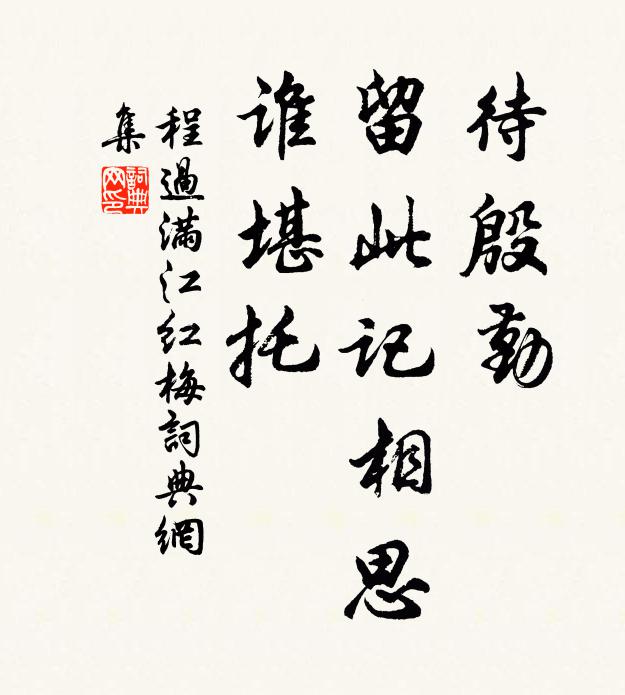 待殷勤
留此记相思
谁堪托
程過满江红梅詞典網
集
詞典
网印